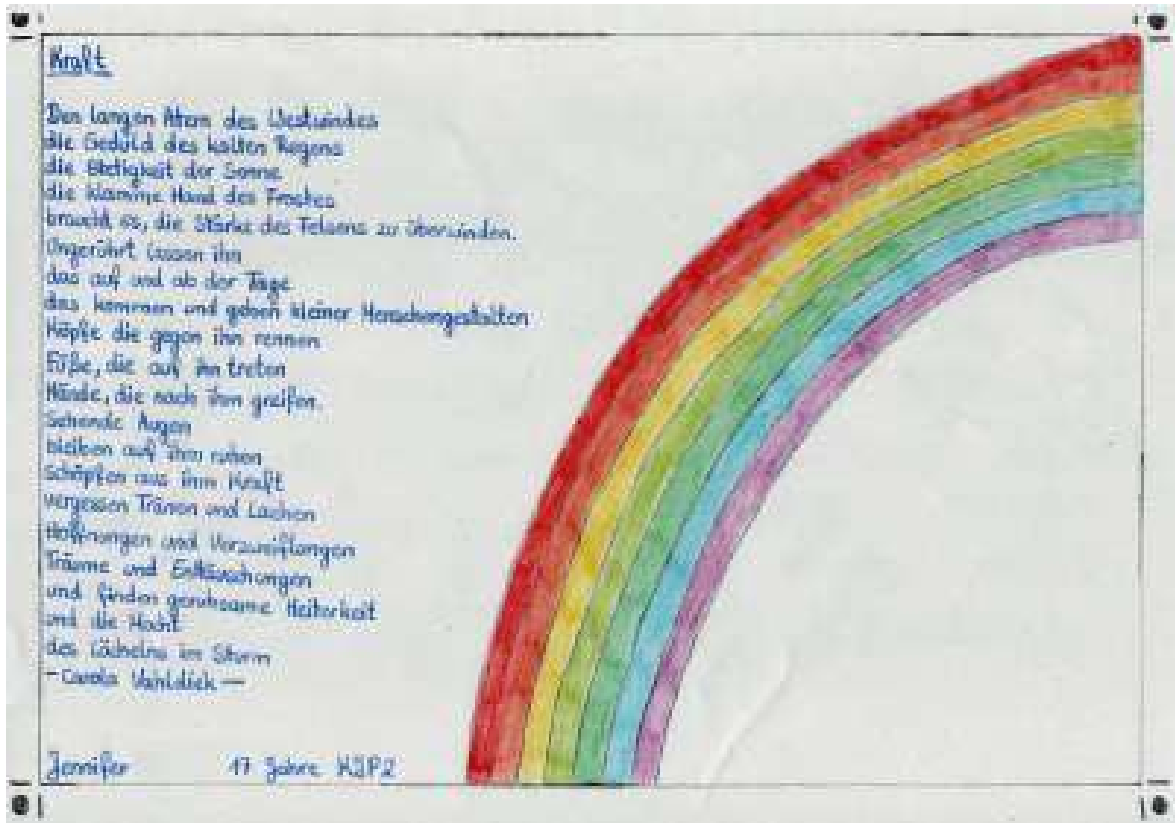 Kraft
Den langen Atem des Westwindes
die Geduld des kalten Regens
die Stetigkeit der Sonne
die klamme Hand des Frostes
braucht es, die Stärke des Felsens zu überwinden.
Ungerührt lassen ihn
das auf und ab der Tage
das kommen und gehen kleiner Menschengestalten
Köpfe die gegen ihn rennen
Füße, die auf ihn treten
Hände, die nach ihm greifen.
Sehende Augen
bleiben auf ihm ruhen
schöpfen aus ihm Kraft
vergessen Tränen und Lachen
Hoffnungen und Verzweiflungen
Träume und Enttäuschungen
und finden geruhsame Heiterkeit
und die Macht
des Lächelns im Sturm
- Carola Vahldiek -
Jennifer 17 Jahre KJP2